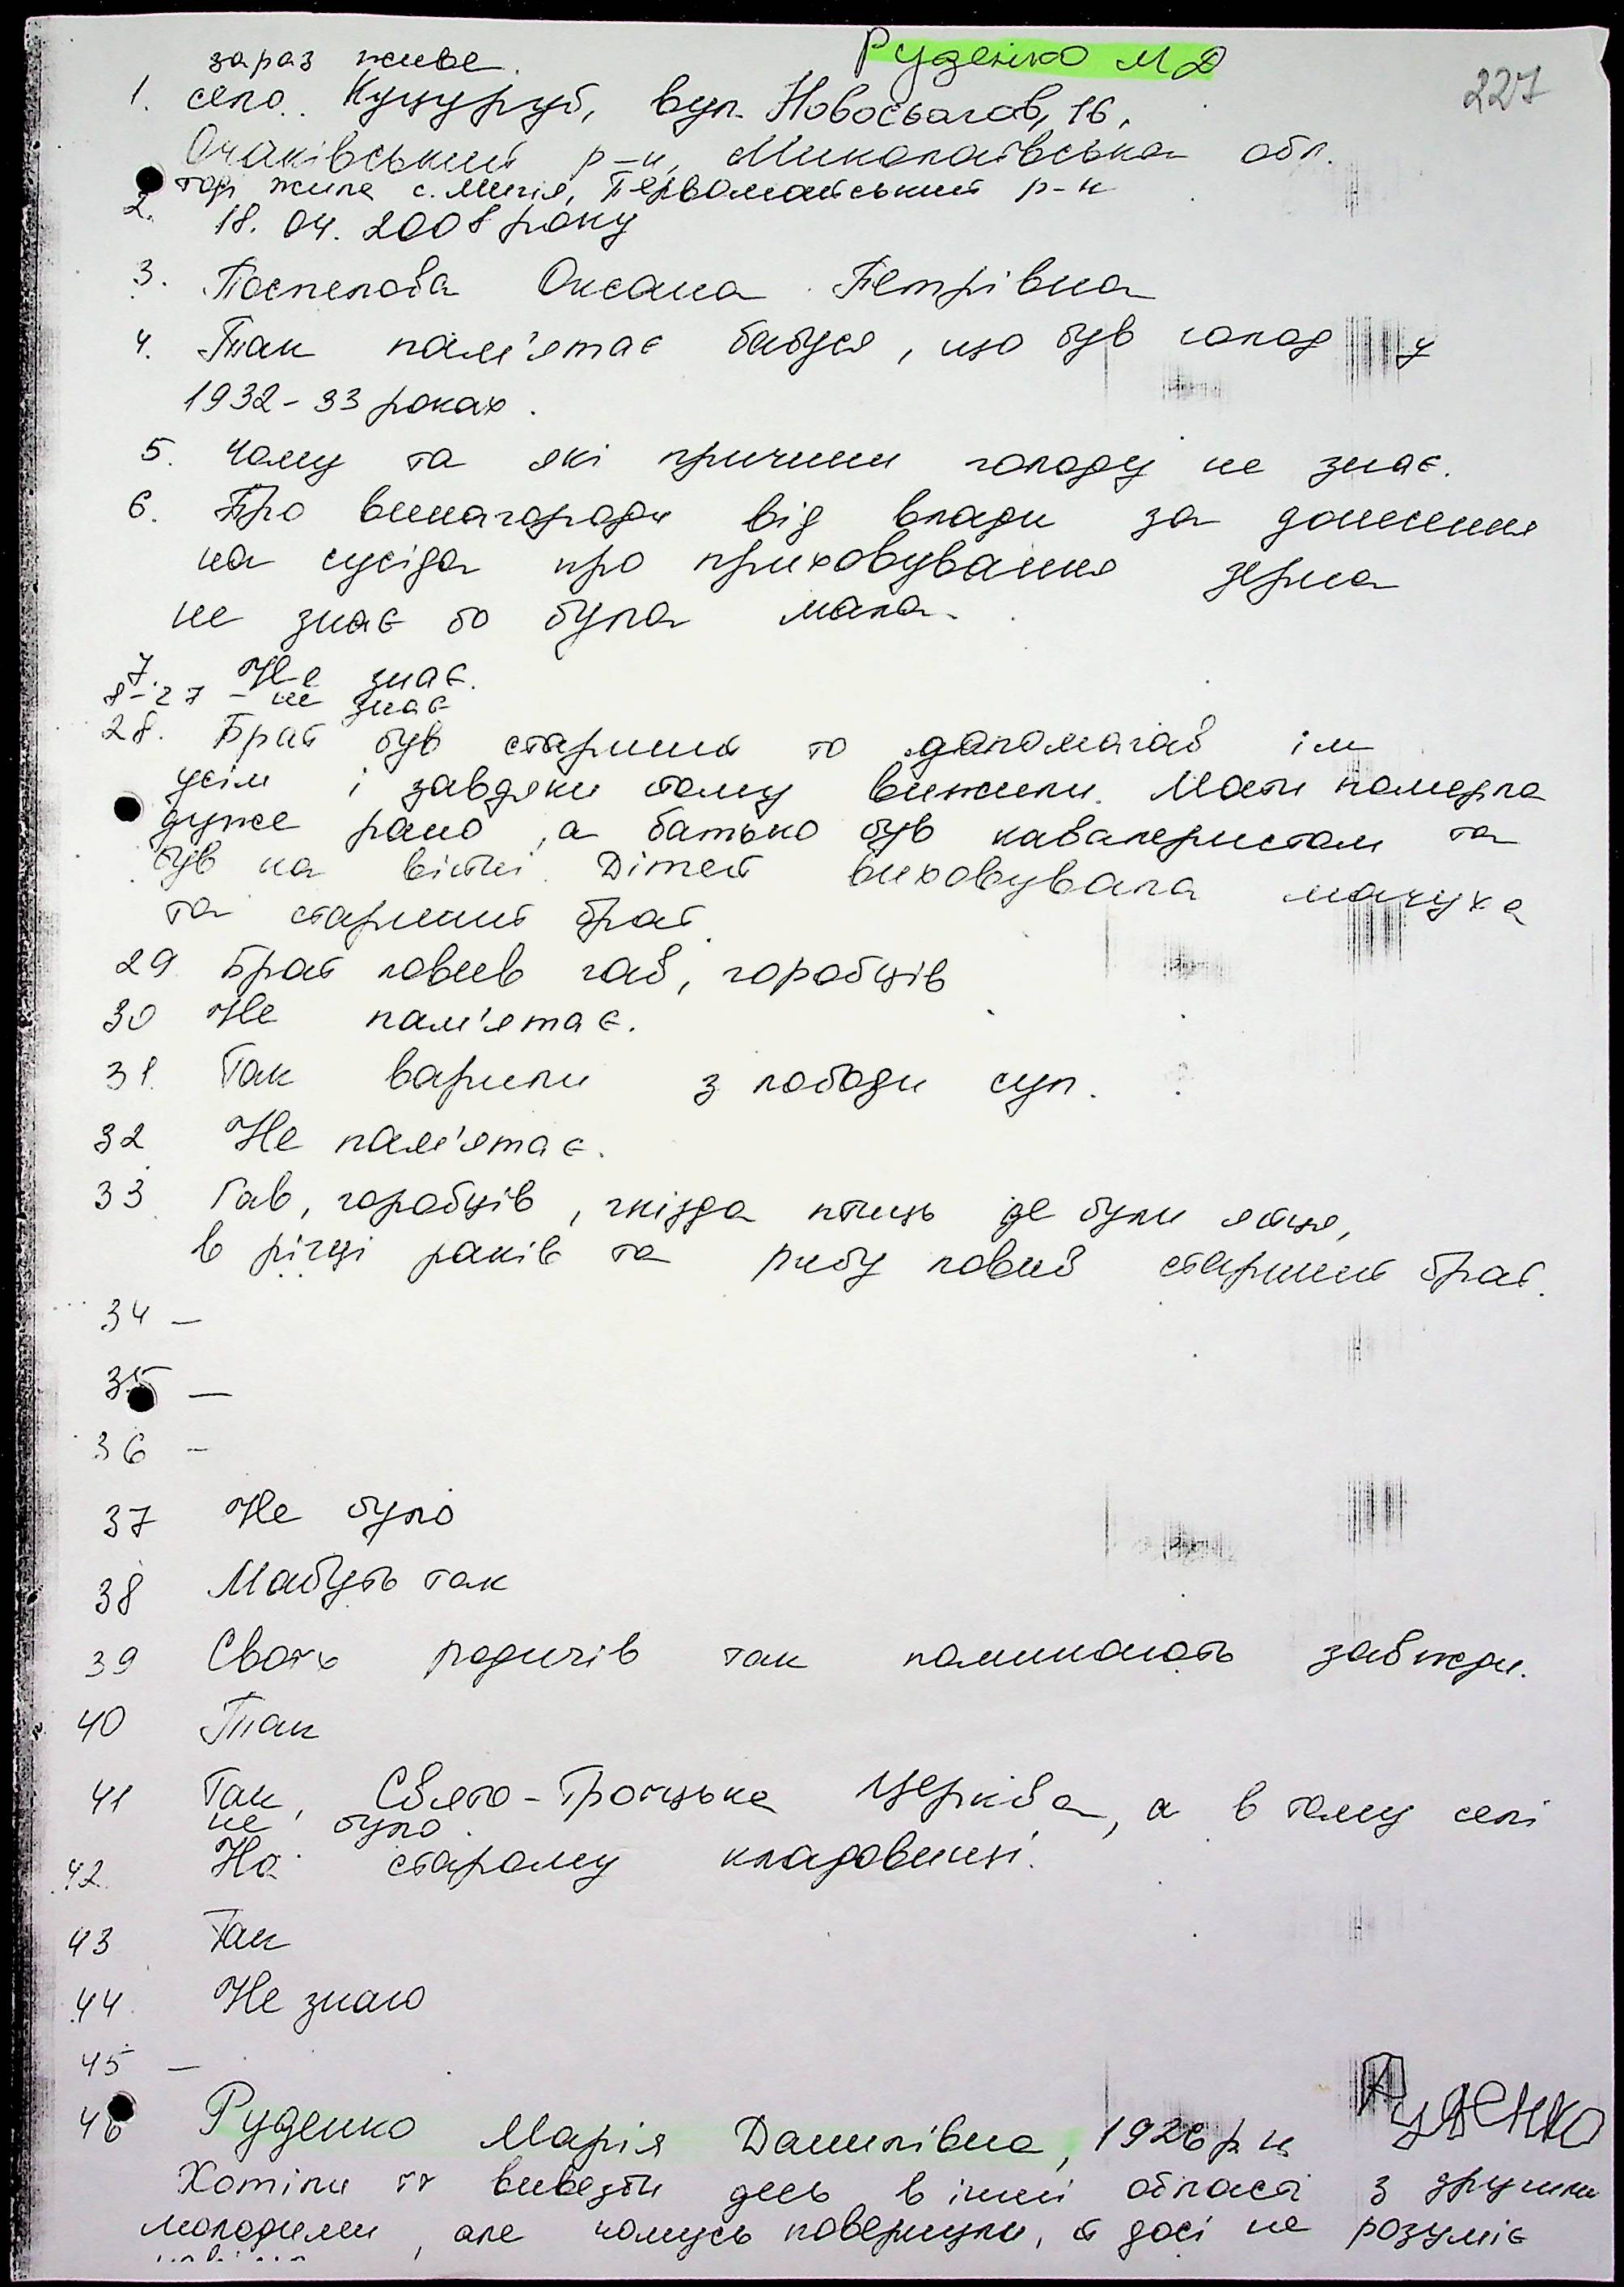 зараз живе. Руденко М Д
227
1. село. Куцуруб, вул. Новосьолов, 16,
Очаківський р-н, Миколаївська обл.
тоді жила с. Мигія, Первомайський р-н
2. 18. 04. 2008 року
3. Поспелова Оксана Петрівна
4. Так пам'ятає бабуся, що був голод у
1932-33 роках.
5. Чому та які причини голоду не знає.
6. Про винагороди від влади за донесення
на сусіда про приховування зерна
не знає бо була мала.
7. Не знає.
8-27 - не знає
28. Брат був старший то допомагав їм
усім і завдяки тому вижили. Мати померла
дуже рано, а батько був кавалеристом та
був на війні. Дітей виховувала мачуха
та старший брат.
29 Брат ловив гав, горобців
30 Не пам'ятає.
31. Так варили з лободи суп.
32 Не пам'ятає.
33 Гав, горобців, гнізда птиць де були яйця,
в річці раків та рибу ловив старший брат.
34 -
35 -
36 -
37 Не було
38 Мабуть так
39 Своїх родичів так поминають завжди.
40 Так
41 Так, Свято-Троїцька Церква, а в тому селі
не було.
42. На старому кладовищі.
43 Так
44. Не знаю
45 -
Руденко
46 Руденко Марія Данилівна, 1926 р н
Хотіли їх вивезти десь в інші області з другими
молодими, але чомусь повернули, й досі не розуміє